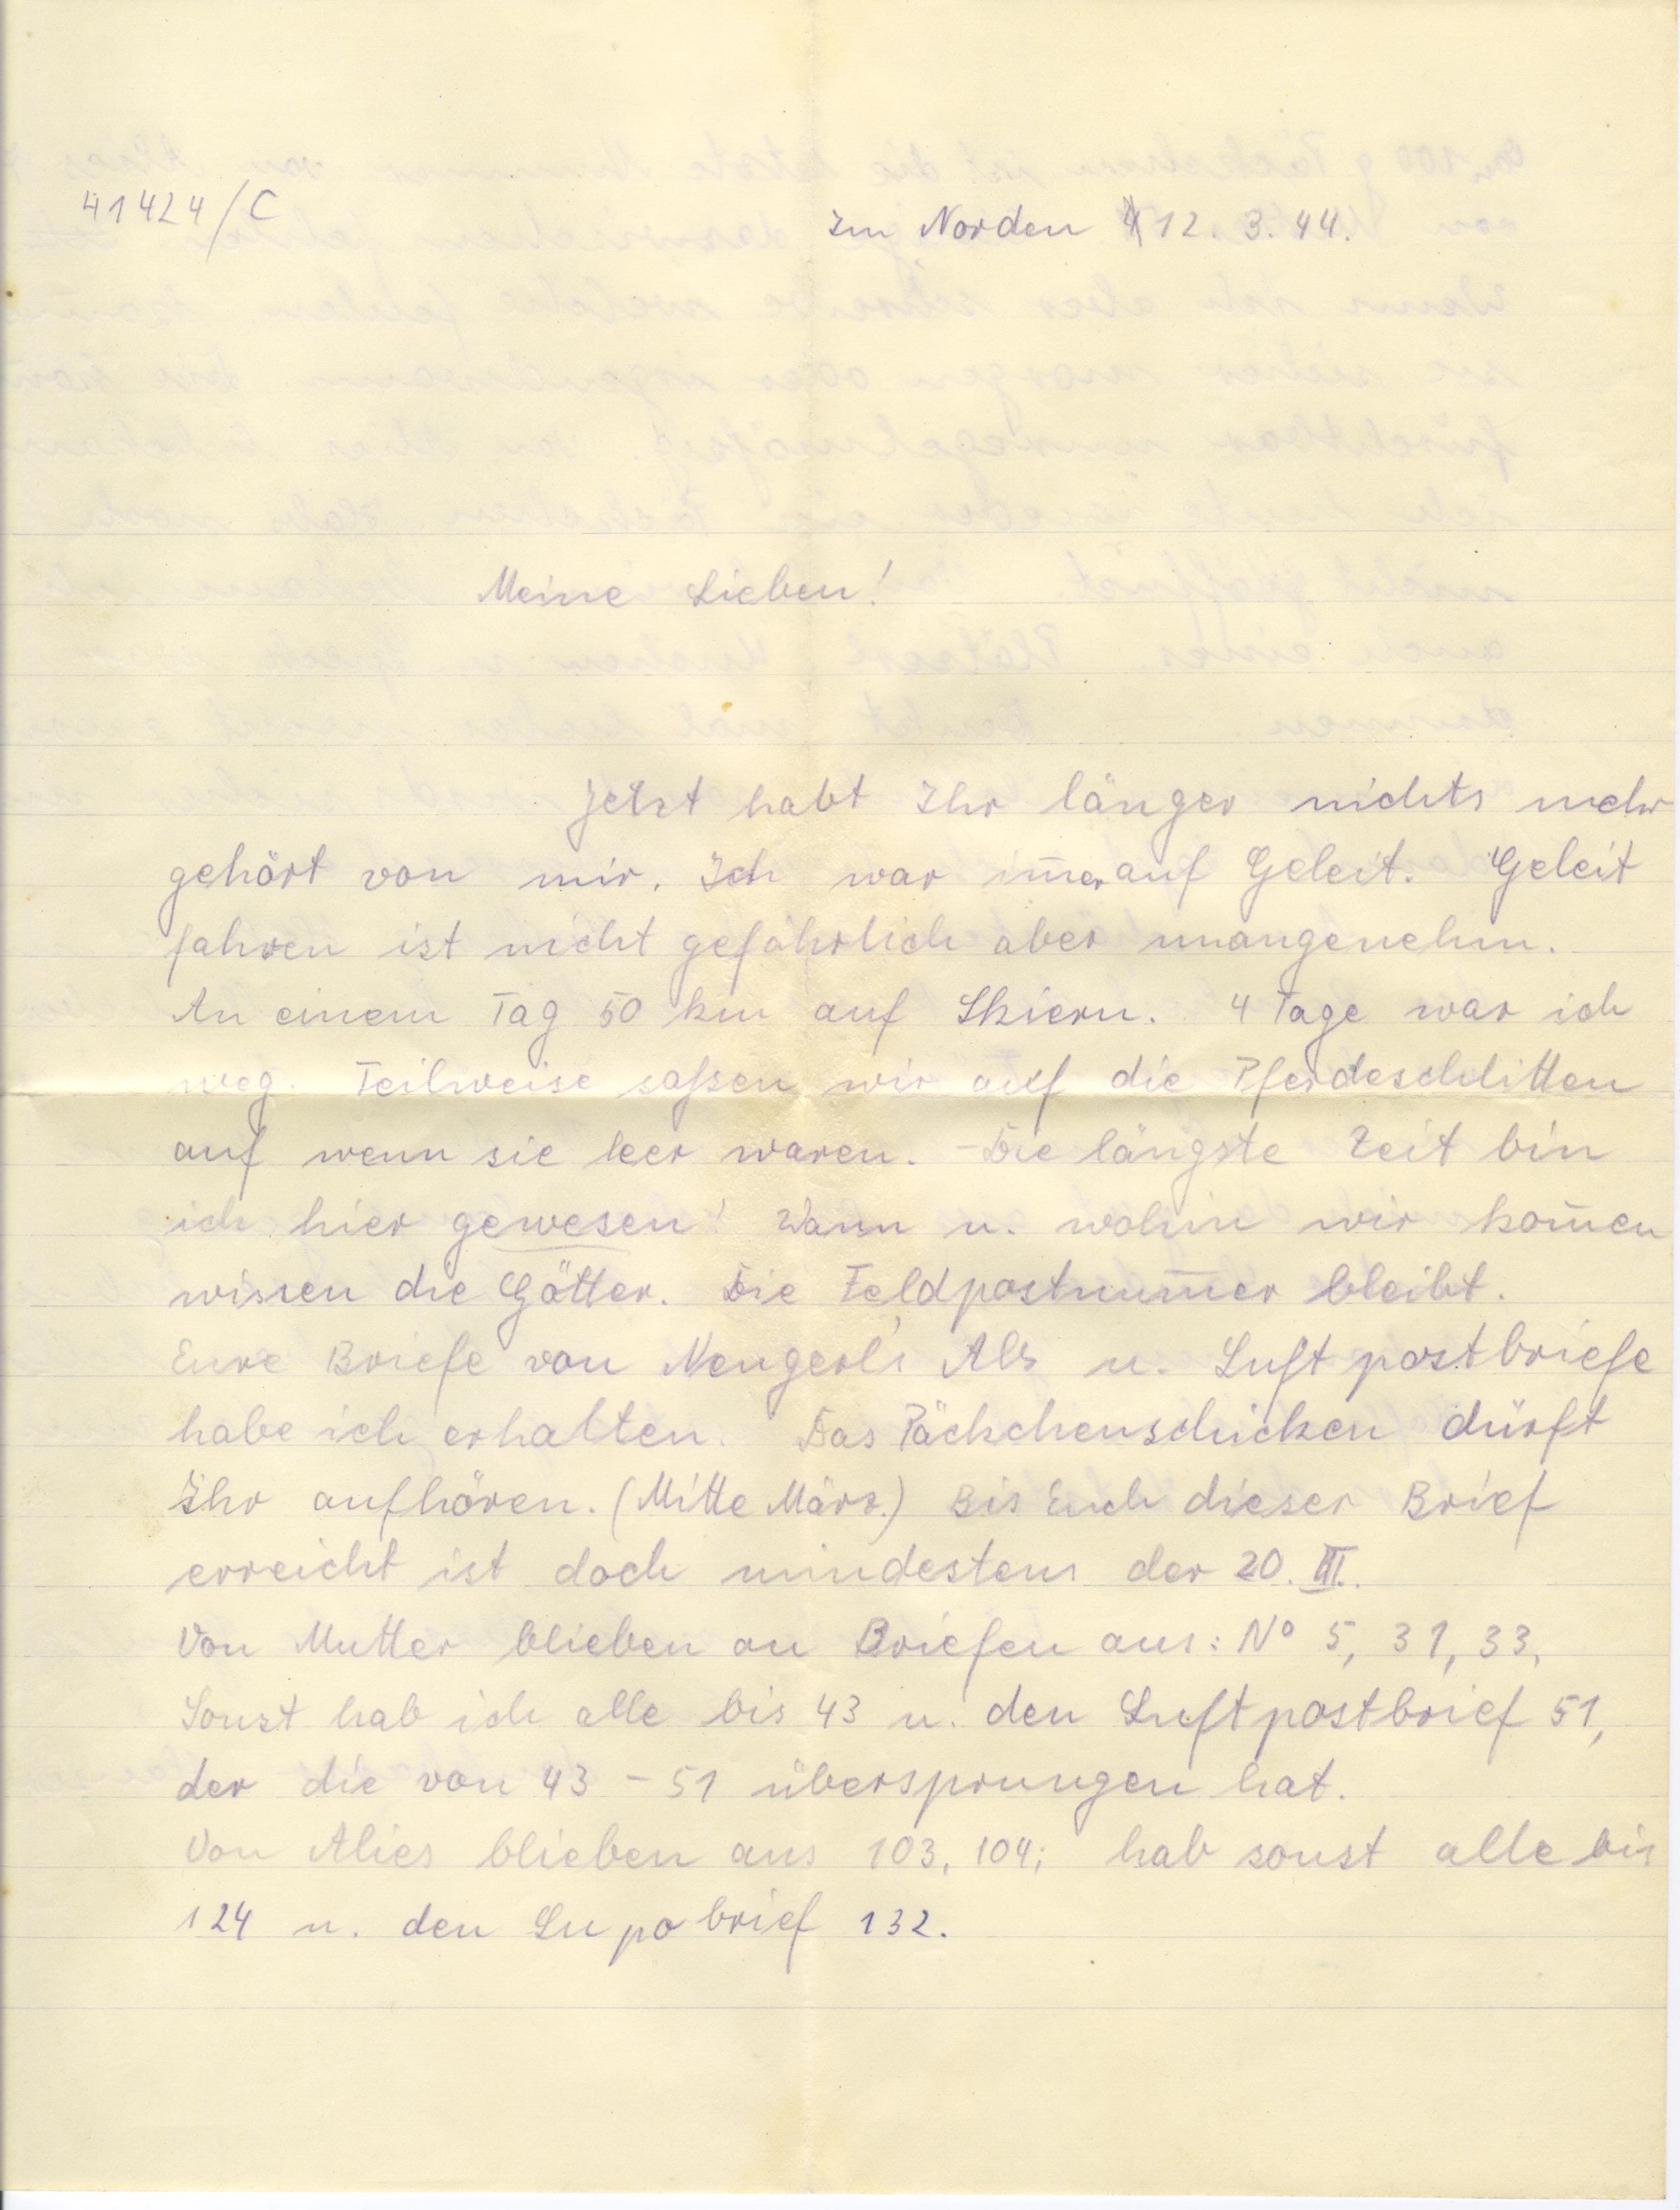 41424/C
Im Norden 12. 3. 44.
Meine Lieben!
Jetzt habt Ihr länger nichts mehr
gehört von mir. Ich war im̅er auf Geleit. Geleit
fahren ist nicht gefährlich aber unangenehm.
An einem Tag 50 km auf Skiern. 4 Tage war ich
weg. Teilweise saßen wir auf die Pferdeschlitten
auf wenn sie leer waren. – Die längste Zeit bin
ich hier gewesen! Wann u. wohin wir kom̅en
wissen die Götter. Die Feldpostnum̅er bleibt.
Eure Briefe von Nengerl's Alb u. Luftpostbriefe
habe ich erhalten. Das Päckchenschicken dürft
Ihr aufhören. (Mitte März.) Bis Euch dieser Brief
erreicht ist doch mindestens der 20. III.
Von Mutter blieben an Briefen aus: No 5, 31, 33,
Sonst hab ich alle bis 43 u. den Luftpostbrief 51,
der die von 43 – 51 übersprungen hat.
Von Alies blieben aus 103, 104; hab sonst alle bis
124 u. den Lupobrief 132.